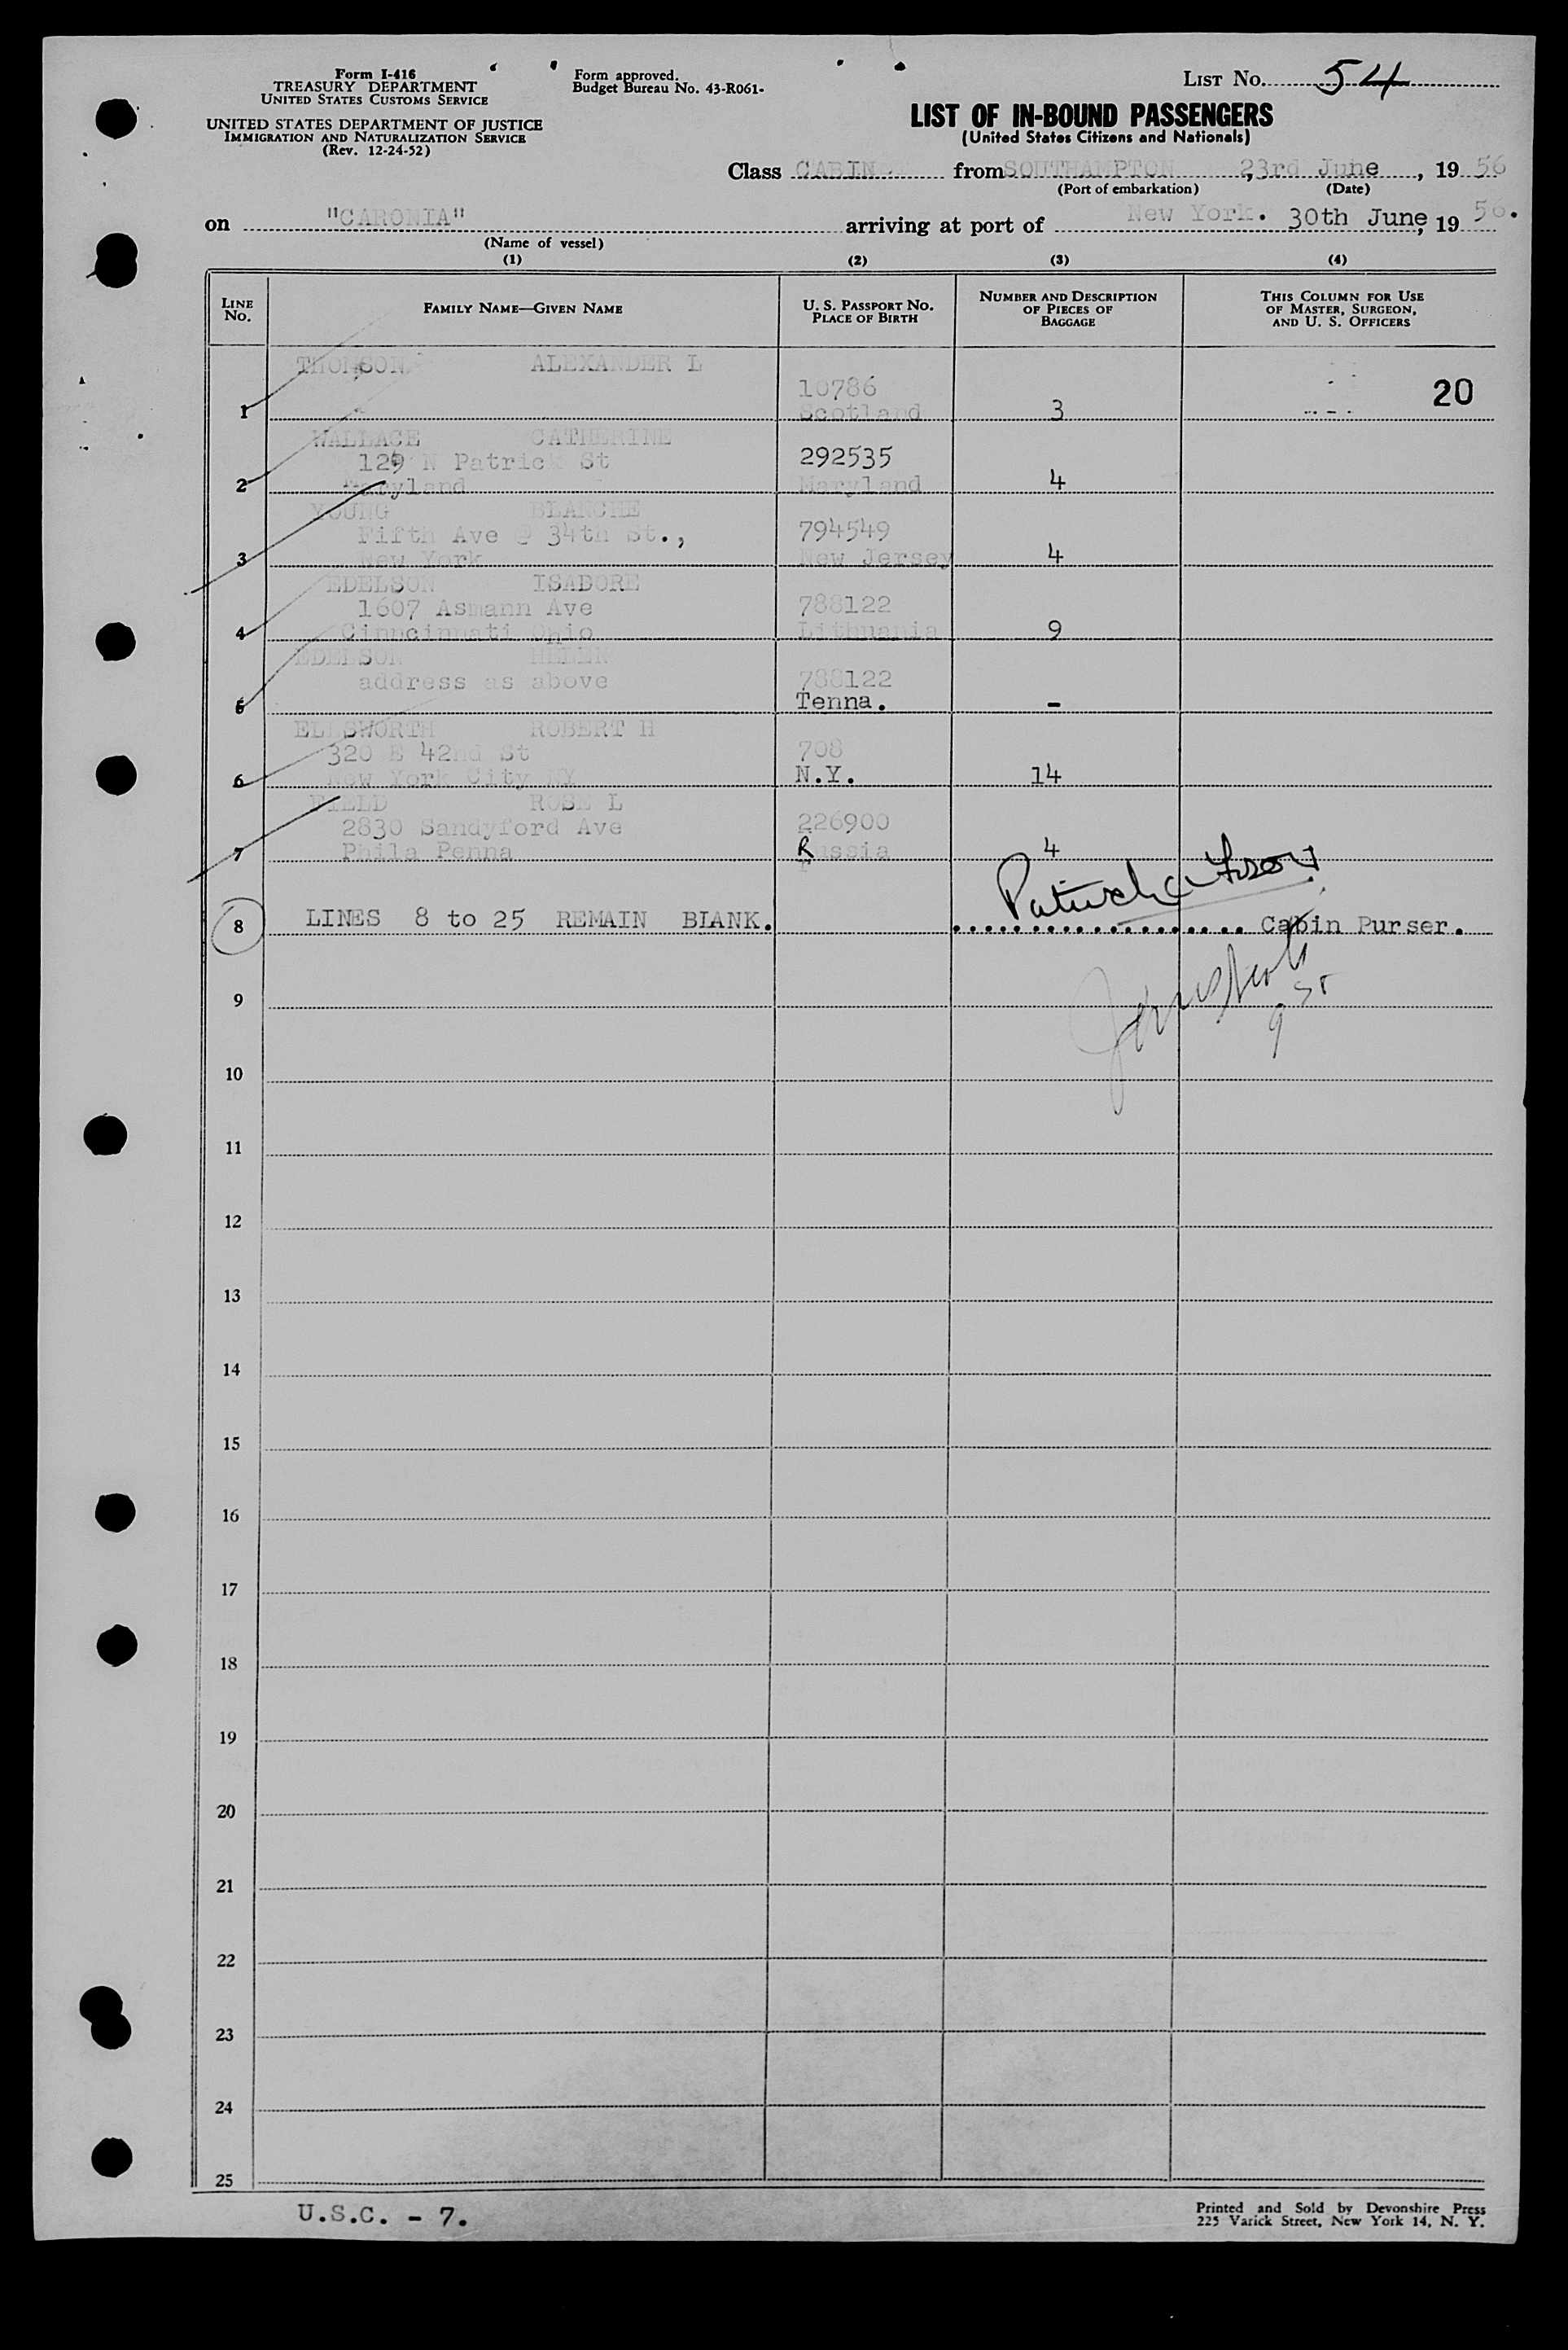 Form I-416
TREASURY DEPARTMENT
UNITED STATES CUSTOMS SERVICE
UNITED STATES DEPARTMENT OF JUSTICE
IMMIGRATION AND NATURALIZATION SERVICE
(Rev. 12-24-52)
Form approved.
Budget Bureau No. 43-R061-
LIST No. 54
LIST OF IN-BOUND PASSENGERS
(United States Citizens and Nationals)
Class CABIN from SOUTHAMPTON, 23rd June, 19 56
(Port of embarkation) (Date)
on "CARONIA" arriving at port of New York. 30th June, 19 56.
(Name of vessel)
(1) (2) (3) (4)
LINE No. FAMILY NAME—GIVEN NAME U. S. PASSPORT No. PLACE OF BIRTH NUMBER AND DESCRIPTION OF PIECES OF BAGGAGE THIS COLUMN FOR USE OF MASTER, SURGEON, AND U. S. OFFICERS
THOMSON ALEXANDER L
10786 20
1 Scotland 3
WALLACE CATHERINE
129 N Patrick St 292535
2 Maryland Maryland 4
YOUNG BLANCHE
Fifth Ave @ 34th St., 794549
3 New York New Jersey 4
EDELSON ISADORE
1607 Asmann Ave 788122
4 Cinncinnati Ohio Lithuania 9
EDELSON HELEN
address as above 788122
5 Tenna. -
ELLSWORTH ROBERT H
320 E 42nd St 708
6 New York City NY N.Y. 14
FIELD ROSE L
2830 Sandyford Ave 226900
7 Phila Penna Russia 4
8 LINES 8 to 25 REMAIN BLANK. .................. Cabin Purser.
9
10
11
12
13
14
15
16
17
18
19
20
21
22
23
24
25
U.S.C. - 7.
Printed and Sold by Devonshire Press
225 Varick Street, New York 14, N. Y.